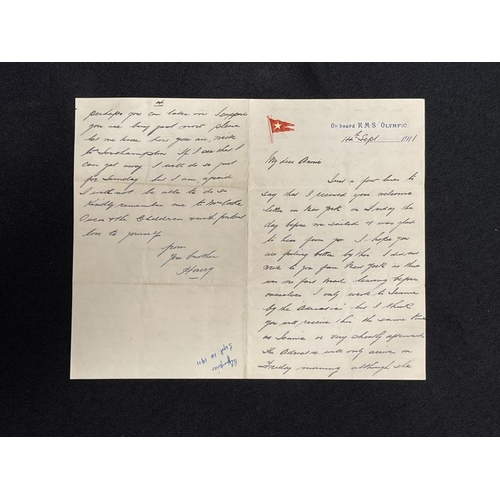 On board R.M.S. "OLYMPIC"
14th Sept 1911
My dear Annie
Just a few lines to
say that I received your welcome
letter in New York on Friday the
day before we sailed & was glad
to hear from you I hope
you are feeling better by this I did not
write to you from New York as there
was no fast mail leaving before
ourselves I only wrote to
by the Adriatic but I think
you will receive this the same time
as or very shortly afterwards
the Adriatic will only arrive on
Friday morning although she
4
perhaps you can later on I suppose
you are busy just now please
let me know how you are write
to Southampton if I see that I
can get away I will do so just
for Sunday but I am afraid
I will not be able to do so
Kindly remember me to Mr
the Children with fondest
love to yourself
from
Your brother
Harry
Olympic
Sept 14 1911